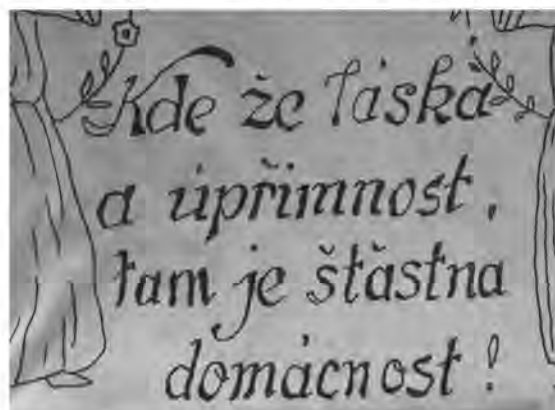 Kde že láska
a úpřimnost,
tam je štǎstna
domácnost!